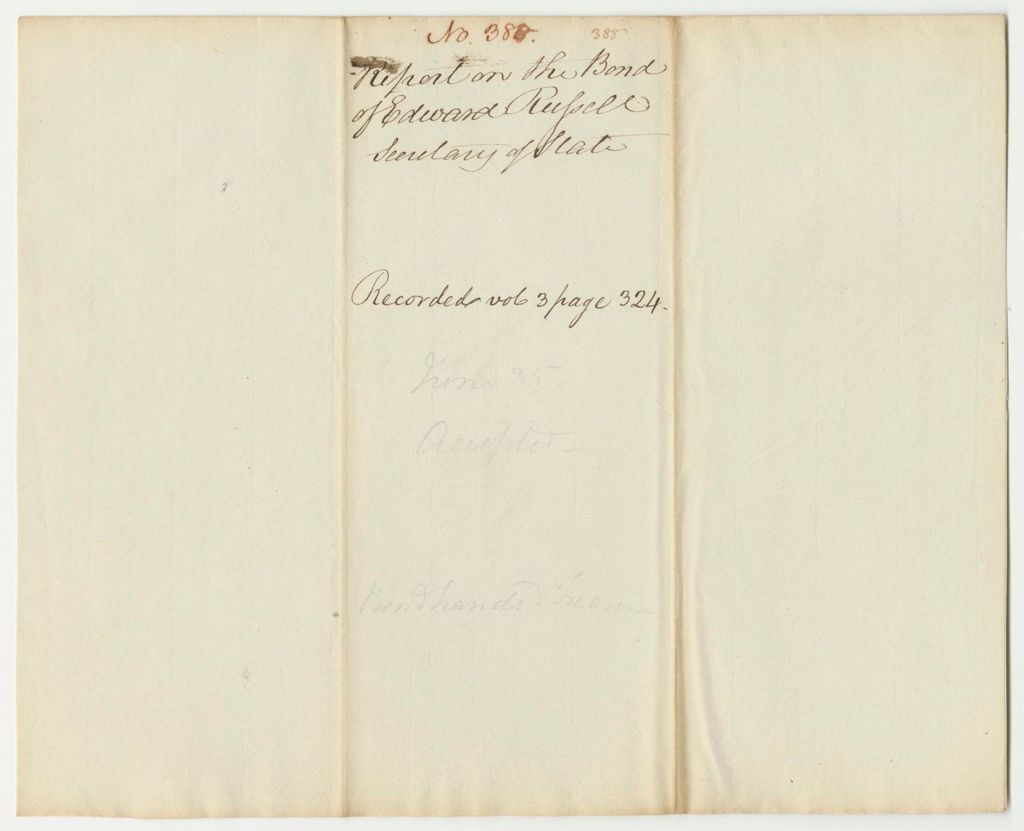 No. 388. 388
Report on the Bond
of Edward Russell
Secretary of State
Recorded vol 3 page 324.
June 25
Accepted
Bond handed